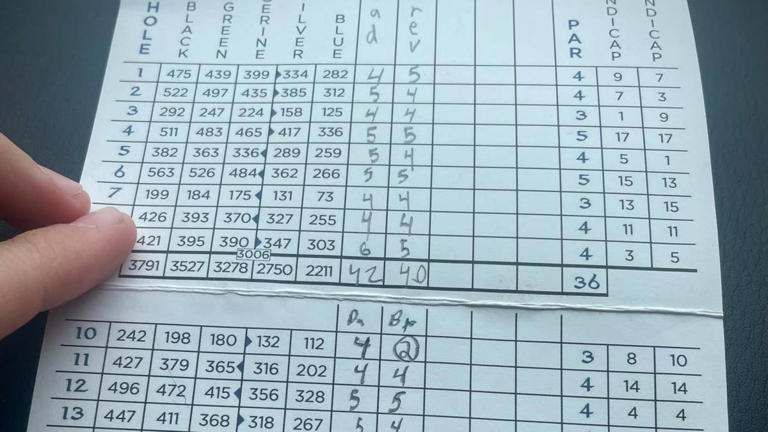 HOLE BLACK GREEN ERINE ILVER BLUE ad rev PAR NDICAP NDICAP
1 475 439 399 334 282 4 5 4 9 7
2 522 497 435 385 312 5 4 4 7 3
3 292 247 224 158 125 4 4 3 1 9
4 511 483 465 417 336 5 5 5 17 17
5 382 363 336 289 259 5 4 4 5 1
6 563 526 484 362 266 5 5 5 15 13
7 199 184 175 131 73 4 4 3 13 15
426 393 370 327 255 4 4 4 11 11
421 395 390 347 303 6 5 4 3 5
3006
3791 3527 3278 2750 2211 42 40 36
10 242 198 180 132 112 4 2 3 8 10
11 427 379 365 316 202 4 4 4 14 14
12 496 472 415 356 328 5 5 4 4 4
13 447 411 368 318 267 5 4